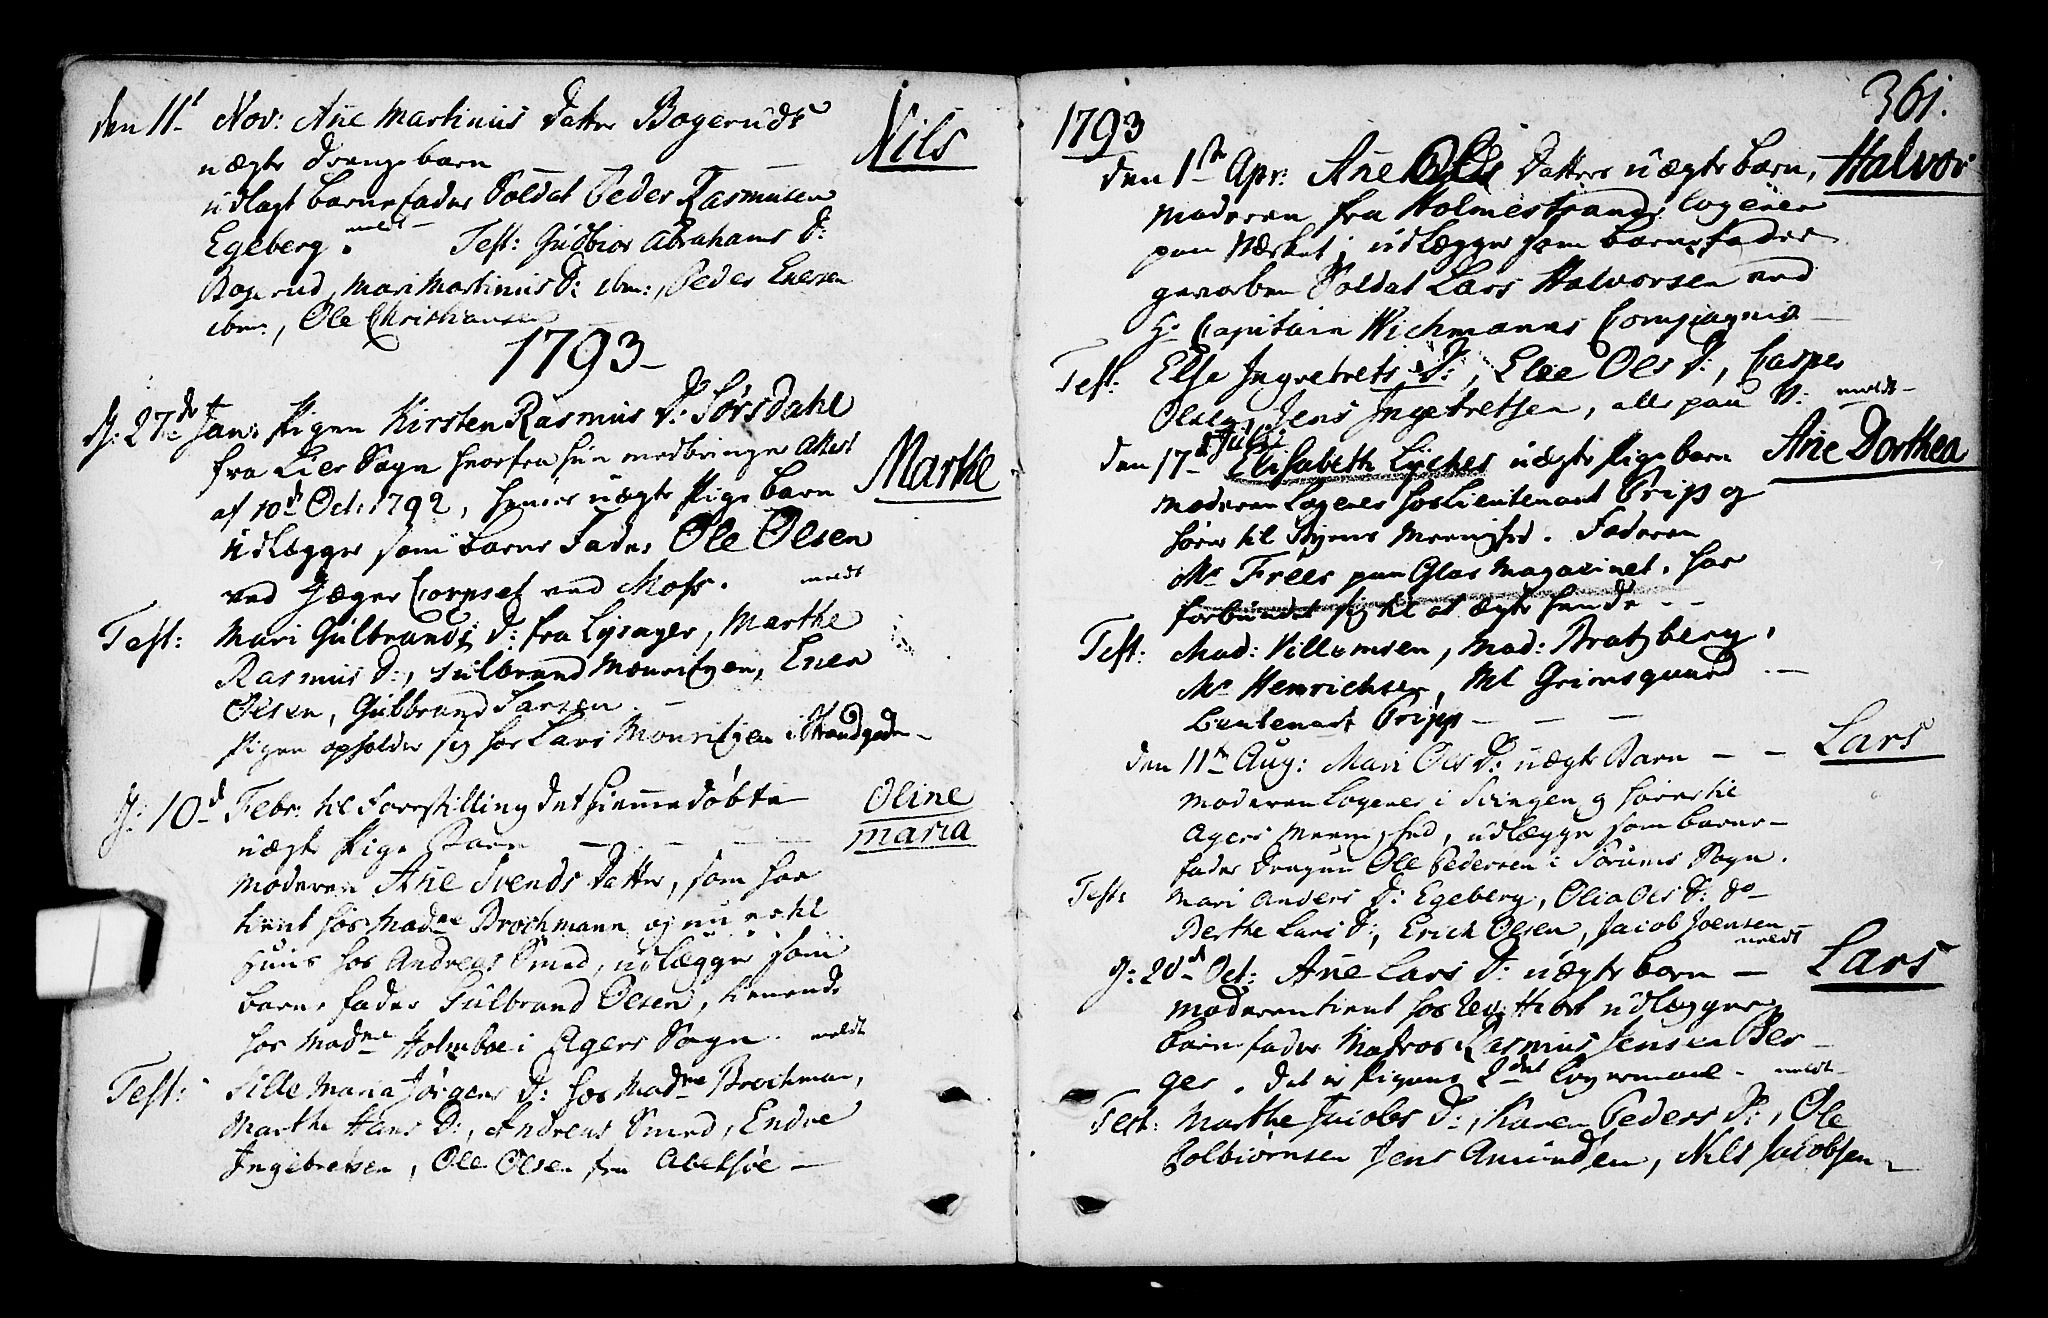 den 11t Nov: Ane Martinus Datter Bogeruds
uægte Drengebarn — Nils
udlagt barnefader Soldat Peder Rasmusen
Egeberg. meldt Test: Gudbior Abrahams D:
Bogerud, Mari Martinus D: ibm:, Peder Enersen
ibm:, Ole Christiansen
1793
D: 27de Jan: Pigen Kirsten Rasmus D: Sørsdahl
fra Lier Sogn hvorfra hun medbringer Attest
af 10d Oct. 1792, hendes uægte Pige Barn Marthe
udlægger som barne Fader Ole Olsen
ved Jæger Corpset ved Moss. meldt
Test: Mari Gulbrands D: fra Lysager, Marthe
Rasmus D:, Gulbrand Mouritzen, Ener
Olsen, Gulbrand Larsen.
Pigen opholder sig hos Lars Mouritzen i Strandgaden
D: 10d Febr: til Forestilling det hiemmedøbte Oline
uægte Pige Barn Maria
Moderen Ane Svends Datter, som har
tient hos Madme Brochmann og nu er til
Huus hos Andreas Smed, udlægger som
barnefader Gulbrand Olsen, tienende
hos Madme Holmboe i Agers Sogn. meldt
Test: Sille Maria Jørgens D: hos Madme Brochman,
Marthe Hans D:, Andreas Smed, Endre
Ingebretsen, Ole Olsen fra Abelsøe
361.
1793
den 1ste Apr: Ane Ols Datters uægte barn, Halvor
Moderen fra Holmestrand, logerer
paa Værket; udlægger som barnefader
geworben Soldat Lars Halvorsen ved
Hr Capitain Wichmanns Compagnie
Test: Else Ingebrets D:, Else Ols D:, Casper
Olsen, Jens Ingebretsen, alle paa V: meldt
den 17d Julii Elisabeth Lyches uægte Pige barn Ane Dorthea
Moderen logerer hos Lieutenant Grip og
hører til Byens Meenighed. Faderen
Mr Frees paa Glas Magazinet, har
forbundet sig til at ægte hende
Test: Mad: Villumsen, Mad: Bratzberg,
Mr Henrichsen, Mr Grimsgaard
Lieutenant Gripp
den 11te Aug: Mari Ols D: uægte Barn Lars
Moderen logerer i Svingen og hører til
Agers Meenighed, udlægger som barne-
fader Dragun Ole Pedersen i Sørums Sogn.
Test: Mari Anders D: Egeberg, Olia Ols D: do
Berthe Lars D:, Erich Olsen, Jacob Joensen
meldt
D: 20d Oct: Ane Lars D: uægte barn Lars
Moderen tient hos Hiort udlægger
barnefader Matros Rasmus Jensen Ber-
ger. det er Pigens 2det Leyermaal. meldt
Test: Marthe Jacobs D:, Karen Peders D:, Ole
Colbiørnsen Jens Amunden, Nils Jacobsen